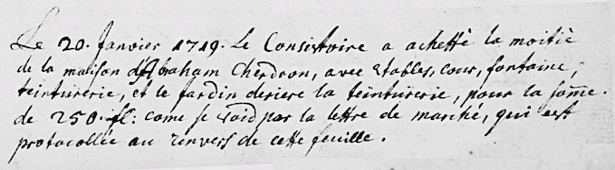 Le 20. Janvier 1719. Le Consistoire a achetté la moitié
de la maison d'Abraham Cherdron, avec Etables, cour, fontaine,
teinturerie, et le jardin deriere la teinturerie, pour la som̄e
de 250. fl: com̄e se void par la lettre de marché, qui est
protocollée au renvers de cette feuille.